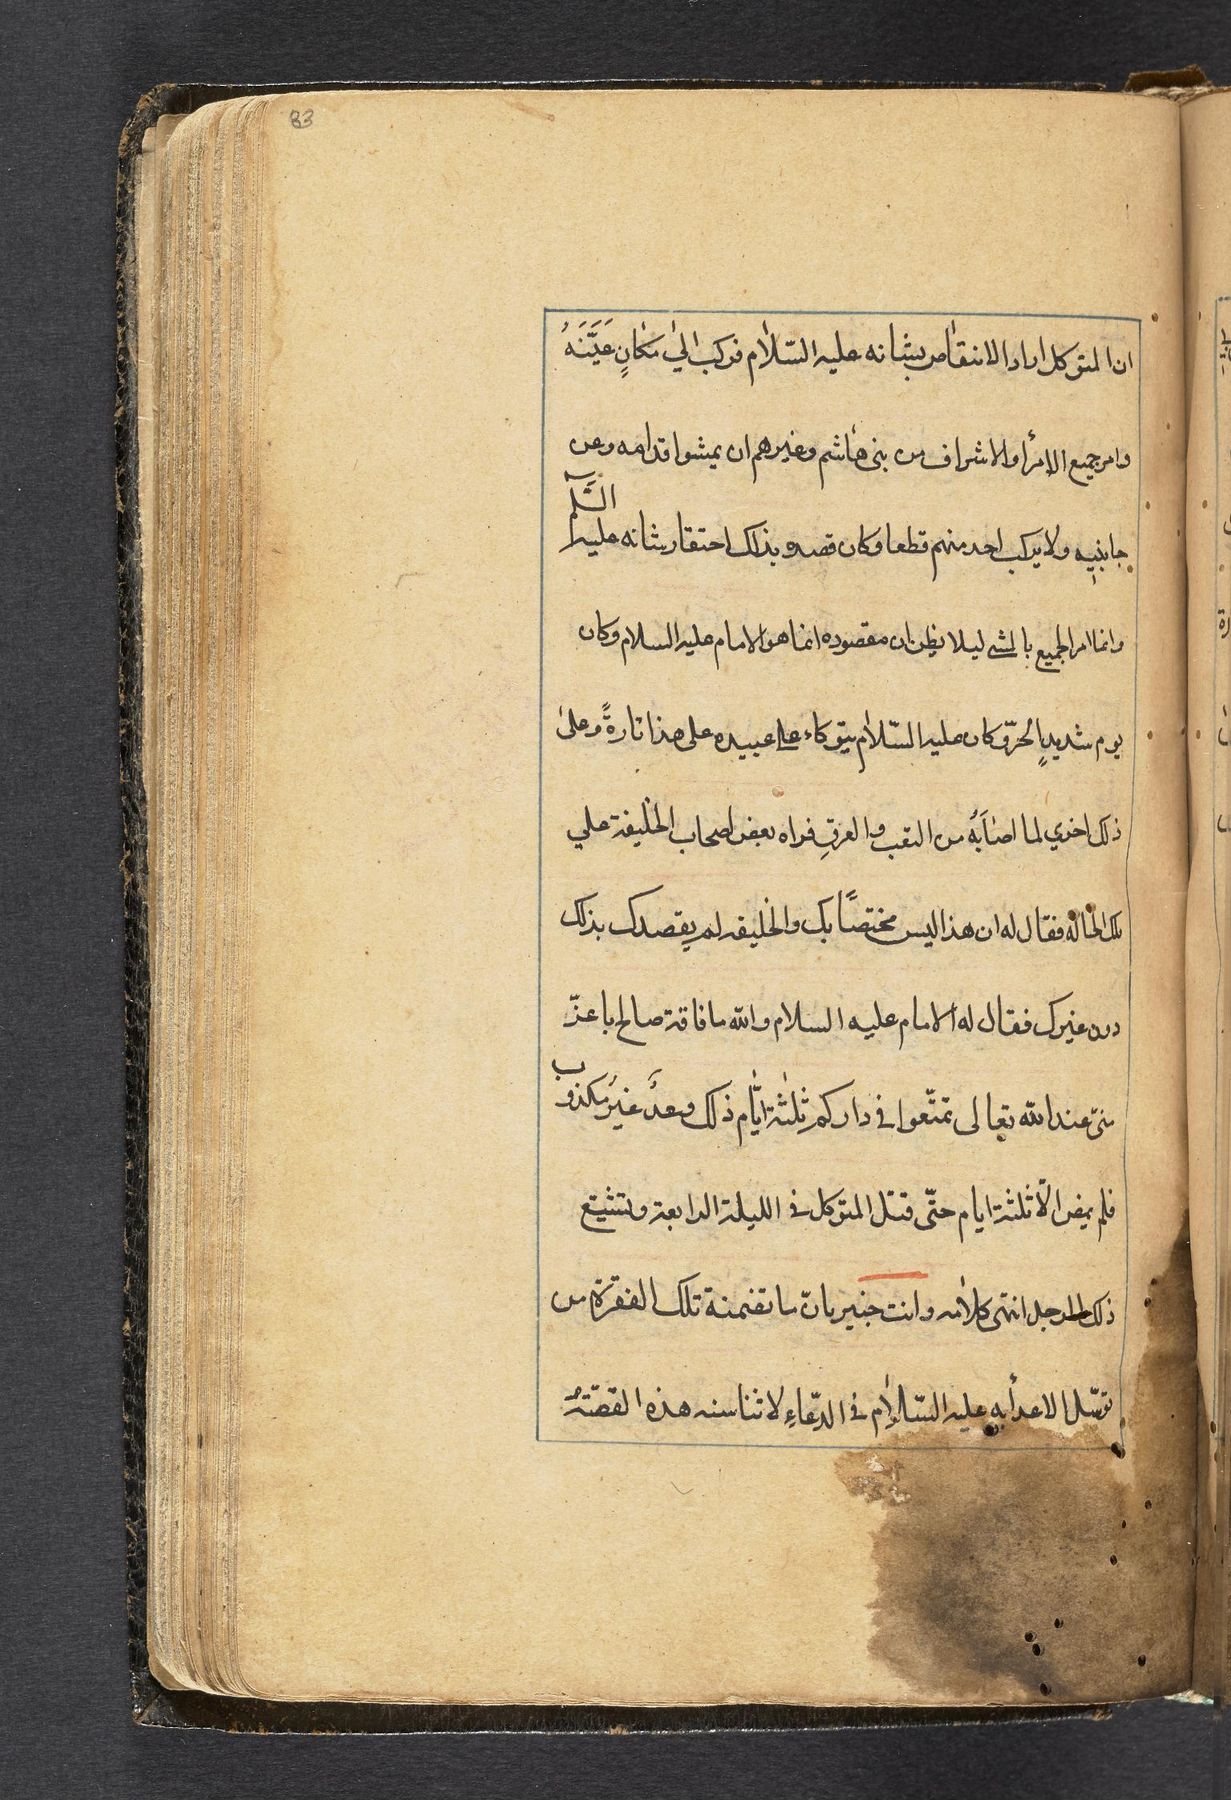 83
ان المتوكل اراد الانتقاص بشانه عليه السّلام فركب الي مكانٍ عَيَّنَهُ
وامر جميع الامرأ والاشراف من بنى هاشم وغيرهم ان يمشوا قدامه وعن
جانبيه ولا يركب احد منهم قطعا وكان قصده بذلك احتقار بشانه عليه السَّلم
وانما امر الجميع بالمشى ليلا يظن ان مقصوده انما هو الامام عليه السلام وكان
يوم شديدٍ الحرّ وكان عليه السّلام يتوكاء على عبيده على هذا تارةً وعلى
ذلك اخري لما اصابَهُ من التعب والعرقِ فراه بعض اصحاب الخليفة علي
تلك الحالة فقال له ان هذا ليس مختصاً بك والخليفه لم يقصدك بذلك
دون غيرك فقال له الامام عليه السلام والله ما ناقة صالح باعزّ
منّى عند الله تعالى تمتّعوا في داركم ثلثة ايّام ذلك وعدٌ غيرُ مكذوب
فلم يمض الّا ثلثة ايام حتّى قتل المتوكل في الليلة الرابعة وتشيّع
ذلك الرجل انتهى كلامه وانت خبير بانّ ما تضمنة تلك الفقرة من
توسّل الاعدأ به عليه السّلام في الدّعاءِ لا تناسبه هذه القصّةُ